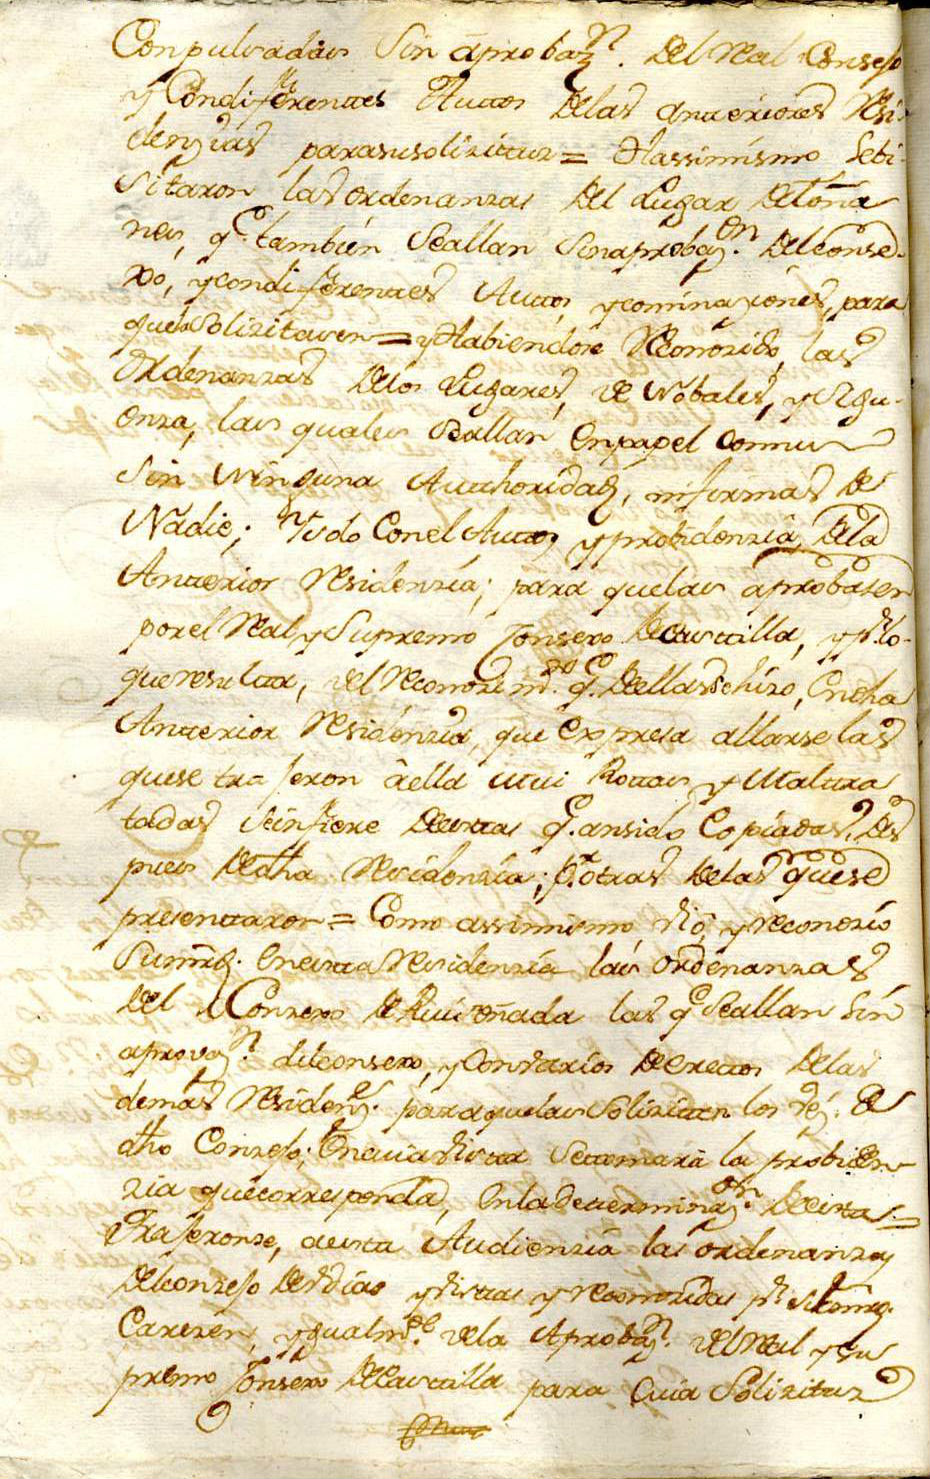 Conpulsadas Sin aprobaz.n del Real Consejo
y Condiferenttes Auttos de las antteriores Resi-
denzias para su solizittuz = Y assimismo se bi-
sitaron las ordenanzas del Lugar de
nes, q.e tambien se allan sin aprobaz.on del conse-
xo, y con diferenttes Auttos, y cominaziones, para
que la solizitasen = y Habiendose Reconozido, las
ordenanzas de los Lugares, de Nobales, y Sigu-
enza, las quales se allan en papel comun
sin Ninguna Authoridad, ni firmas de
Nadie; Visto Con el Autto, y probidenzia, de la
Antterior Residenzia; para que las aprobasen
por el Real y Supremo Consexo de Casttilla, y p.r lo-
que resultta, del Reconozim.to q.e de ellas se hizo, en dha
Antterior Residenzia, que expresa allarse las
que se trajeron â ella mui Rottas y Malttra
tadas se infiere de esttas q.e an sido Copiadas. Des
pues de dha Residenzia; p.r otras de las que se
presenttaron = Como assimismo vió, y reconozio
Su mrd. en estta Residenzia las ordenanzas
del Conzexo de las q.e se allan sin
aprovaz.n del consexo, y con varios Decrettos de las
demas Residenz.s para que las solizitten los rex.s de
dho Conzejo; En cuia vistta se ttomara la probiden-
zia que corresponda, en la determinaz.on de estta =
Trajeronse, a estta Audienzia las ordenanzas
del conzejo de Udias y visttas y reconozidas p.r su mrd.
Carezen, ygualm.te de la Aprobaz.n del Real y su
premo Consexo de Casttilla para Cuia Solizittuz